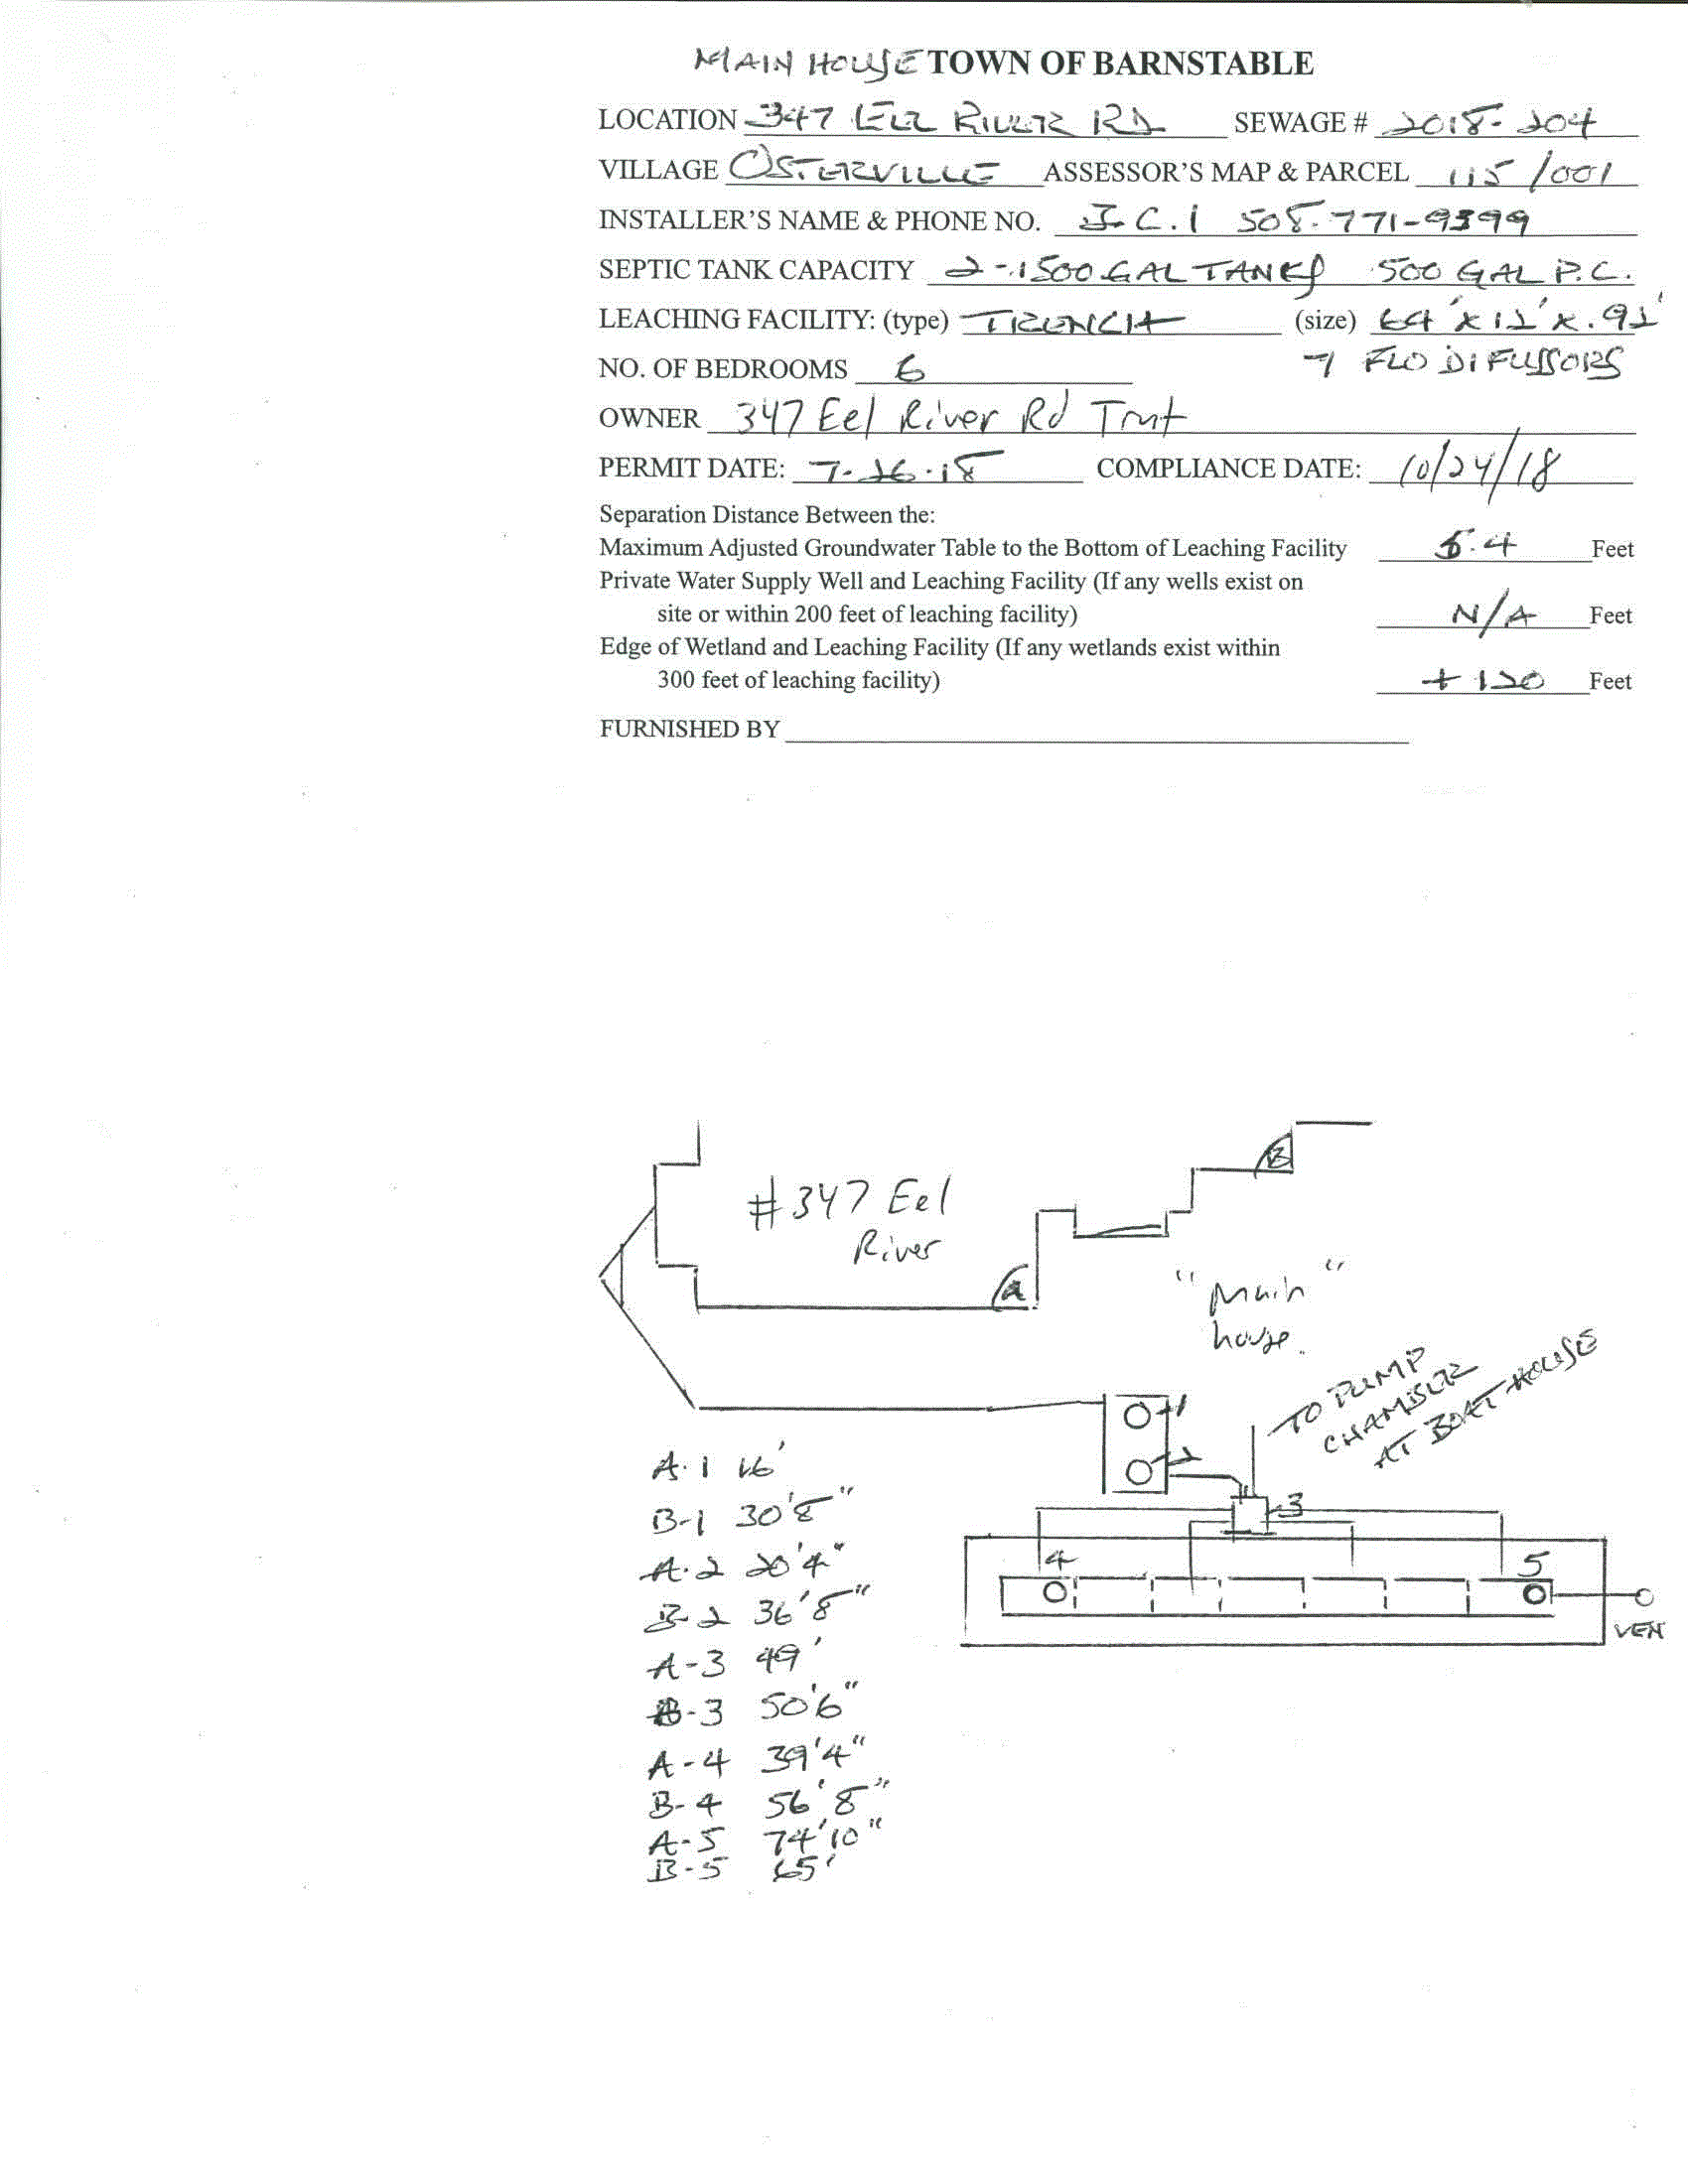 MAIN HOUSE TOWN OF BARNSTABLE
LOCATION 347 EEL RIVER RD SEWAGE # 2018-204
VILLAGE OSTERVILLE ASSESSOR'S MAP & PARCEL 115/001
INSTALLER'S NAME & PHONE NO. J.C.I 508-771-9399
SEPTIC TANK CAPACITY 2-1500 GAL TANKS 500 GAL P.C.
LEACHING FACILITY: (type) TRENCH (size) 64' x 12' x .92'
NO. OF BEDROOMS 6 7 FLO DIFUSSORS
OWNER 347 Eel River Rd Trust
PERMIT DATE: 7-26-18 COMPLIANCE DATE: 10/24/18
Separation Distance Between the:
Maximum Adjusted Groundwater Table to the Bottom of Leaching Facility 5.4 Feet
Private Water Supply Well and Leaching Facility (If any wells exist on
site or within 200 feet of leaching facility) N/A Feet
Edge of Wetland and Leaching Facility (If any wetlands exist within
300 feet of leaching facility) +120 Feet
FURNISHED BY
B
#347 Eel
River
A
"Main"
house.
TO PUMP
CHAMBER
AT BOAT HOUSE
1
2
3
4
5
VEN
A-1 16'
B-1 30'8"
A-2 20'4"
B-2 36'8"
A-3 49'
B-3 50'6"
A-4 39'4"
B-4 56'8"
A-5 74'10"
B-5 65'